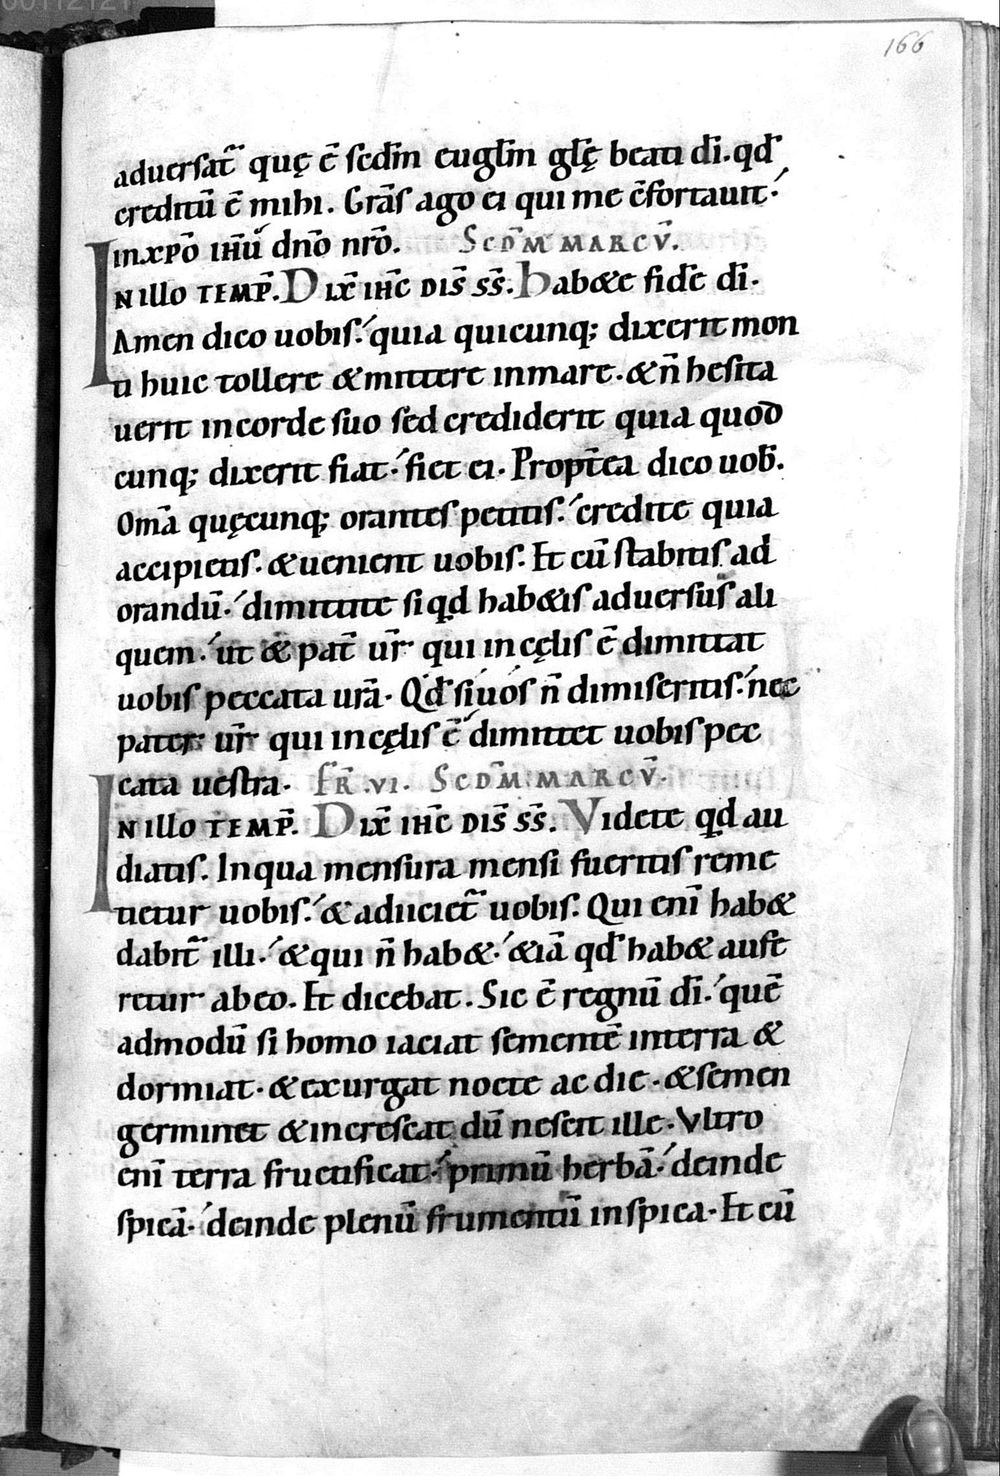 00112121
166
aduersat̄ quę ē scd̄m euglm̄ glę̄ beati dī. qd̄
creditū ē mihi. Grās ago ei qui me c̄fortauit.
in xp̄o ih̄ū dn̄o nr̄o. SCD̄M MARCV̄.
IN ILLO TEMP̄. DIX̄ IH̄C DIS̄ SS̄. Hab&e fidē dī.
Amen dico uobis. quia quicunq; dixerit mon
ti huic tollere & mittere in mare. & n̄ hesita
uerit in corde suo sed crediderit quia quod
cunq; dixerit fiat. fiet ei. Propt̄ea dico uob̄.
Om̄a quęcunq; orantes petitis. credite quia
accipietis. & uenient uobis. Et cū stabitis ad
orandū. dimittite si qd hab&is aduersus ali
quem. ut & pat̄ ur̄ qui in cęlis ē dimittat
uobis peccata ur̄a. Qd̄ si uos n̄ dimiseritis. nec
pater ur̄ qui in cęlis ē dimittet uobis pec
cata uestra. FR̄. VI. SCD̄M MARCV̄.
IN ILLO TEMP̄. DIX̄ IH̄C DIS̄ SS̄. Videte qd au
diatis. In qua mensura mensi fueritis reme
tietur uobis. & adiciet̄ uobis. Qui enī hab&
dabit̄ illi. & qui n̄ hab&. &iā qd̄ hab& aufe
retur ab eo. Et dicebat. Sic ē regnū dī. quē
admodū si homo iaciat sementē in terra &
dormiat. & exurgat nocte ac die. & semen
germinet & increscat dū nescit ille. Vltro
enī terra fructificat. primū herbā. deinde
spicā. deinde plenū frumentū in spica. Et cū